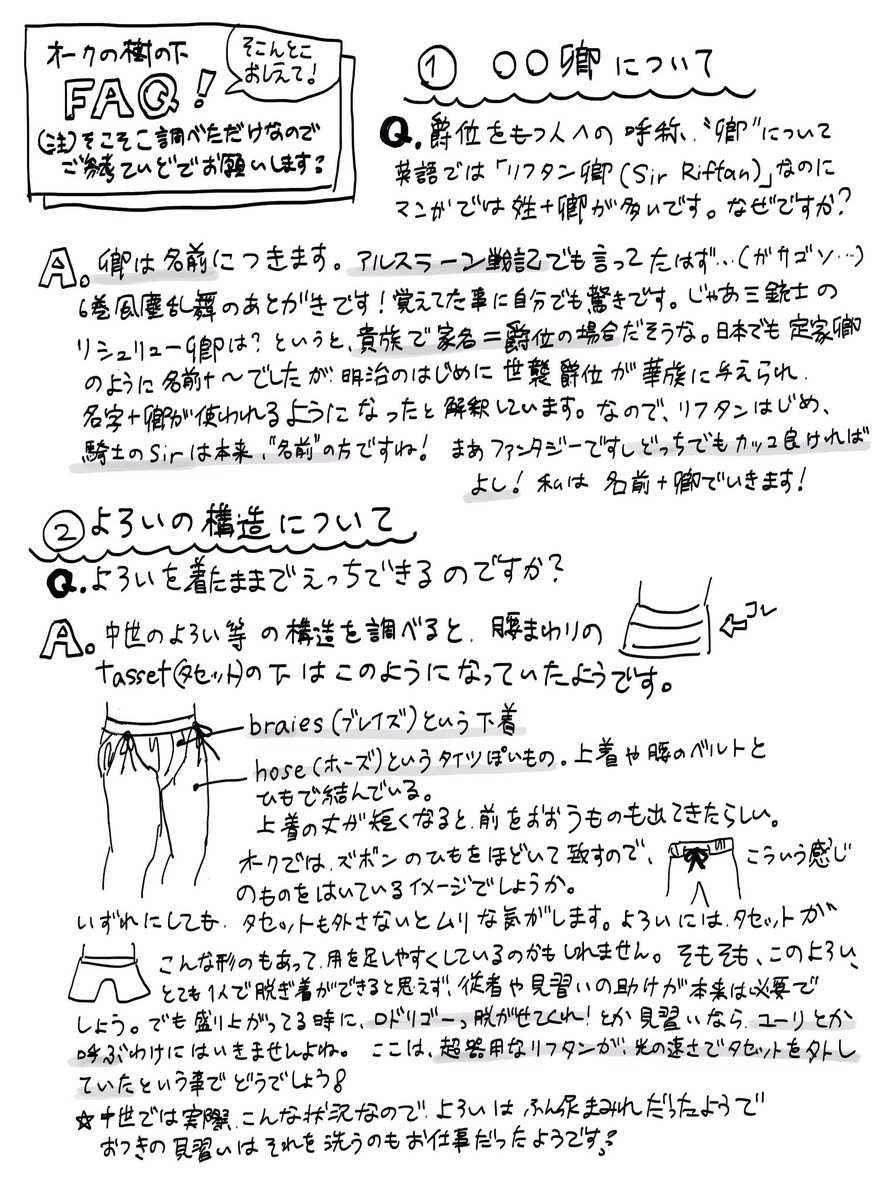 オークの樹の下
FAQ!
(注)そこそこ調べただけなので
ご参考ていどでお願いします?
そこんとこ
おしえて!
① 〇〇卿について
Q. 爵位をもつ人への呼称、"卿"について
英語では「リフタン卿(Sir Riftan)」なのに
マンガでは姓+卿が多いです。なぜですか?
A. 卿は名前につきます。アルスラーン戦記でも言ってたはず…(ガサゴソ…)
6巻風塵乱舞のあとがきです!覚えてた事に自分でも驚きです。じゃあ三銃士の
リシュリュー卿は?というと、貴族で家名=爵位の場合だそうな。日本でも定家卿
のように名前+〜でしたが、明治のはじめに世襲爵位が華族に与えられ、
名字+卿が使われるようになったと解釈しています。なので、リフタンはじめ、
騎士のSirは本来、"名前"の方ですね! まあファンタジーですしどっちでもカッコ良ければ
よし! 私は名前+卿でいきます!
② よろいの構造について
Q. よろいを着たままでえっちできるのですか?
A. 中世のよろい等の構造を調べると、腰まわりの
tasset(タセット)の下はこのようになっていたようです。
コレ
braies(ブレイズ)という下着
hose(ホーズ)というタイツぽいもの。上着や腰のベルトと
ひもで結んでいる。
上着の丈が短くなると、前をおおうものも出てきたらしい。
オークでは、ズボンのひもをほどいて致すので、
こういう感じ
のものをはいているイメージでしょうか。
いずれにしても、タセットも外さないとムリな気がします。よろいには、タセットが
こんな形のもあって、用を足しやすくしているのかもしれません。そもそも、このよろい、
とても1人で脱ぎ着ができると思えず、従者や見習いの助けが本来は必要で
しょう。でも盛り上がってる時に、ロドリゴーっ脱がせてくれ!とか見習いなら、ユーリとか
呼ぶわけにはいきませんよね。 ここは、超器用なリフタンが、光の速さでタセットを外し
ていたという事でどうでしょう?
☆中世では実際、こんな状況なので、よろいはふん尿まみれだったようで
おつきの見習いはそれを洗うのもお仕事だったようです?